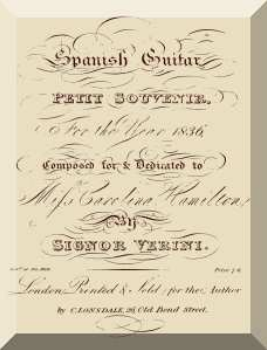 Spanish Guitar
PETIT SOUVENIR.
For the Year 1836
Composed for & Dedicated to
Miss Carolina Hamilton,
By
SIGNOR VERINI.
Price
London, Printed & Sold, for the Author
by C. LONSDALE, 26, Old Bond Street.